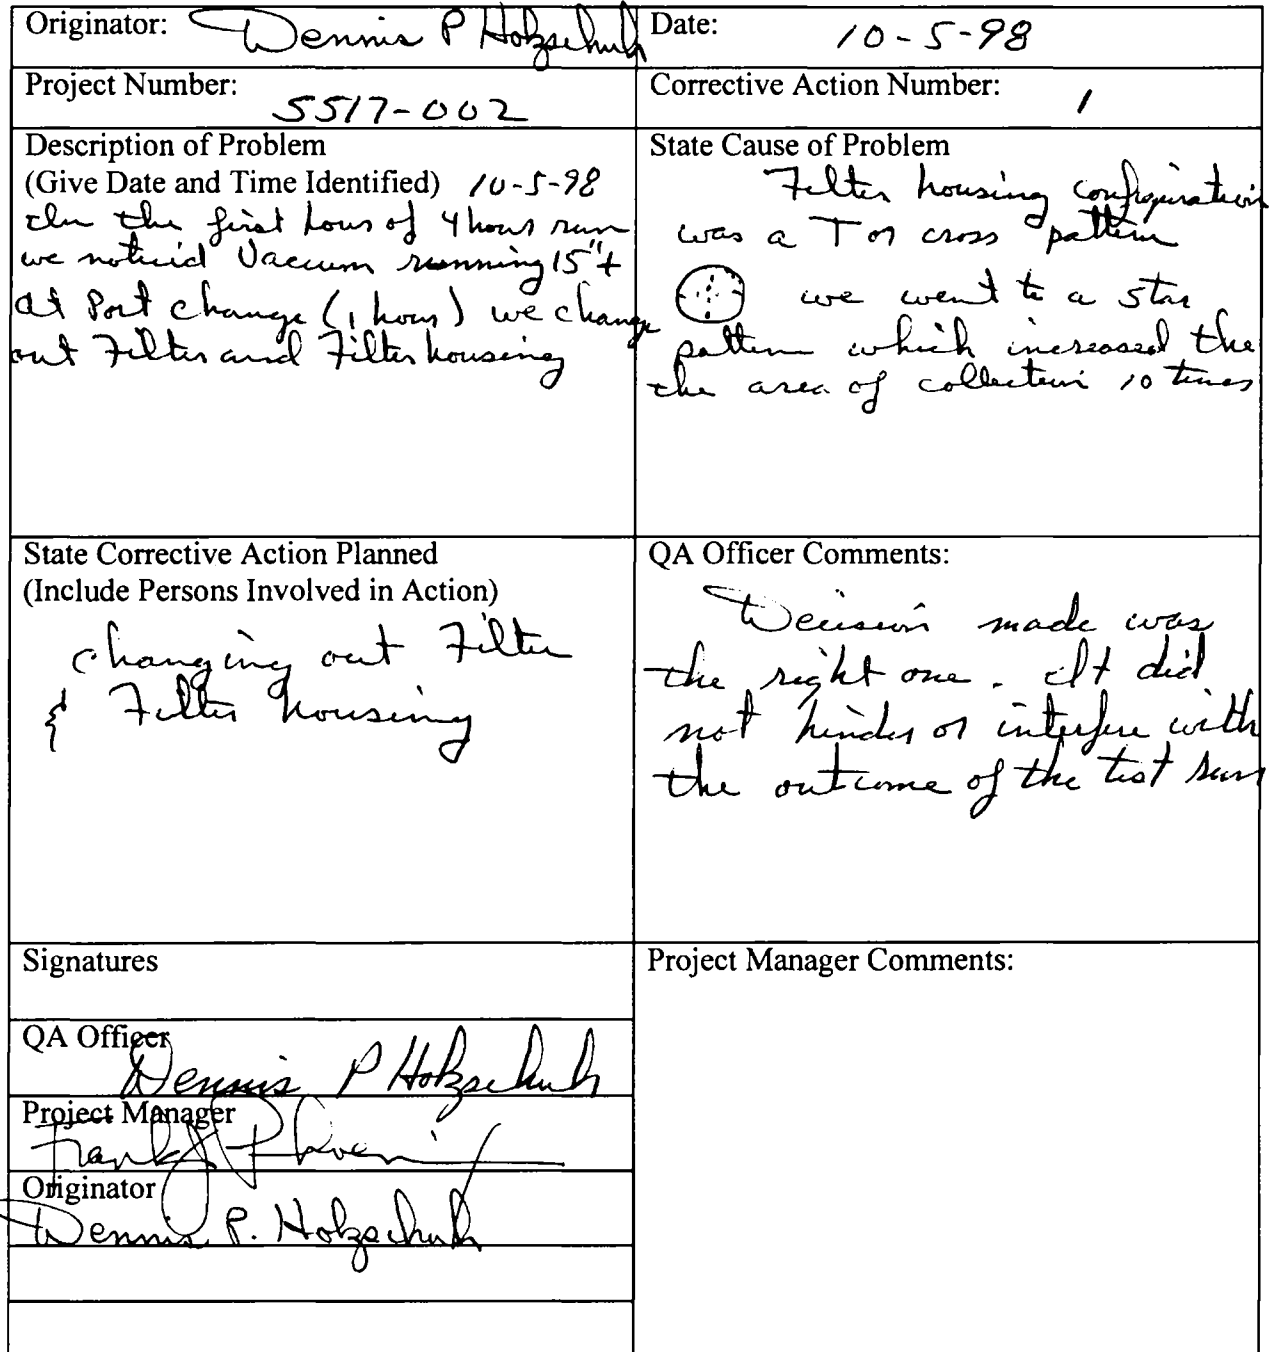 Originator: Dennis P Holzschuh
Date: 10-5-98
Project Number: 5517-002
Corrective Action Number: 1
Description of Problem
(Give Date and Time Identified) 10-5-98
In the first hour of 4 hour run
we noticid Vaccum running 15"+
at Port change (1 hour) we change
out Filter and Filter housing
State Cause of Problem
Filter housing configuration
was a T or cross pattern
we went to a star
pattern which increased the
the area of collection 10 times
State Corrective Action Planned
(Include Persons Involved in Action)
changing out Filter
& Filter housing
QA Officer Comments:
Decision made was
the right one. It did
not hinder or interfere with
the outcome of the test run
Signatures
QA Officer
Dennis P Holzschuh
Project Manager
Frank J Phoenix
Originator
Dennis P. Holzschuh
Project Manager Comments: